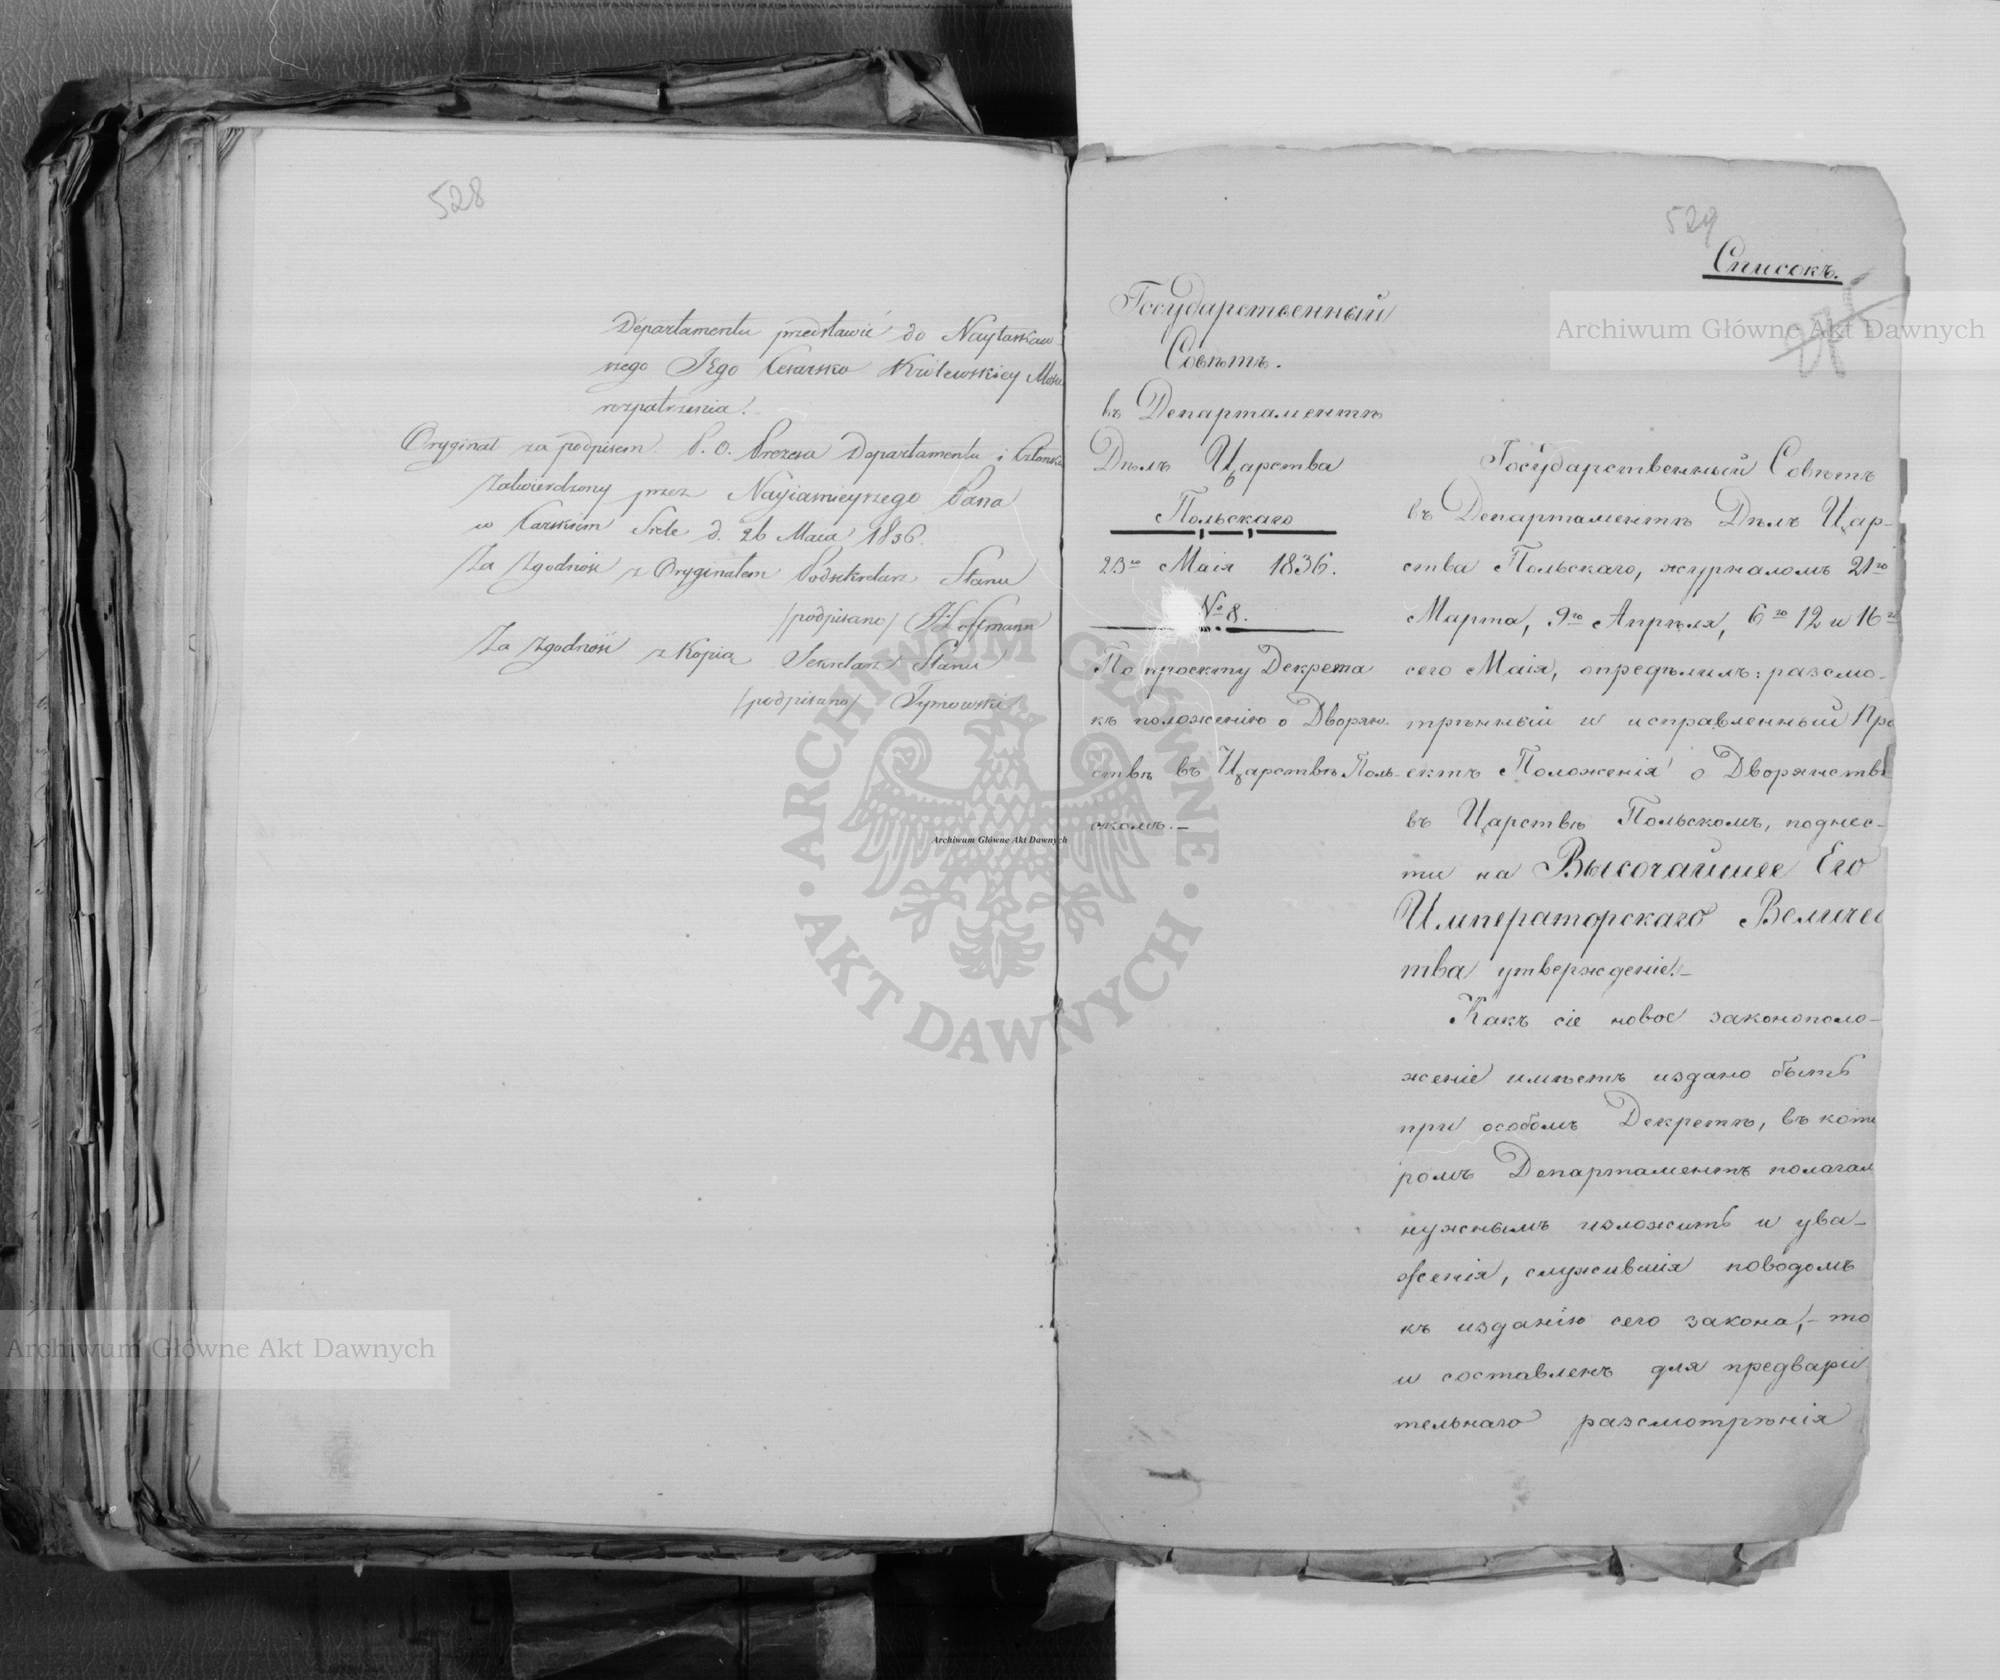 528
Departamentu przedstawić do Nayłaskaw
szego Jego Cesarsko Królewskiey Mości
rozpatrzenia.
Oryginał za podpisem P. O. Prezesa Departamentu i Członków
zatwierdzony przez Nayiaśnieyszego Pana
w Carskiem Siele d. 26 Maia 1836.
Za zgodność z Oryginałem Podsekretarz Stanu
/podpisano/ Hoffmann
Za zgodność z Kopią Sekretarz Stanu
/podpisano/ Tymowski
529
Списокъ.
Государственный
Совѣтъ.
въ Департаментѣ
Дѣлъ Царства
Польскаго
23го Маія 1836.
№ 8.
По проекту Декрета
къ положенію о Дворян-
ствѣ въ Царствѣ Поль-
скомъ.-
Государственный Совѣтъ
въ Департаментѣ Дѣлъ Цар-
ства Польскаго, журналомъ 21го
Марта, 9го Апрѣля, 6го 12 и 16го
сего Маія, опредѣлилъ: разсмо-
трѣнный и исправленный Про
ектъ Положенія о Дворянствѣ
въ Царствѣ Польскомъ, поднес-
ти на Высочайшее Его
Императорскаго Величес
тва утвержденіе.-
Какъ сіе новое законополо-
женіе имѣетъ издано быть
при особомъ Декретѣ, въ кото
ромъ Департаментъ полагал
нужнымъ изложить и ува-
женія, служившія поводомъ
къ изданію сего закона,- то
и составленъ для предвари
тельнаго разсмотрѣнія
Archiwum Główne Akt Dawnych
Archiwum Główne Akt Dawnych
Archiwum Główne Akt Dawnych
ARCHIWUM GŁÓWNE AKT DAWNYCH